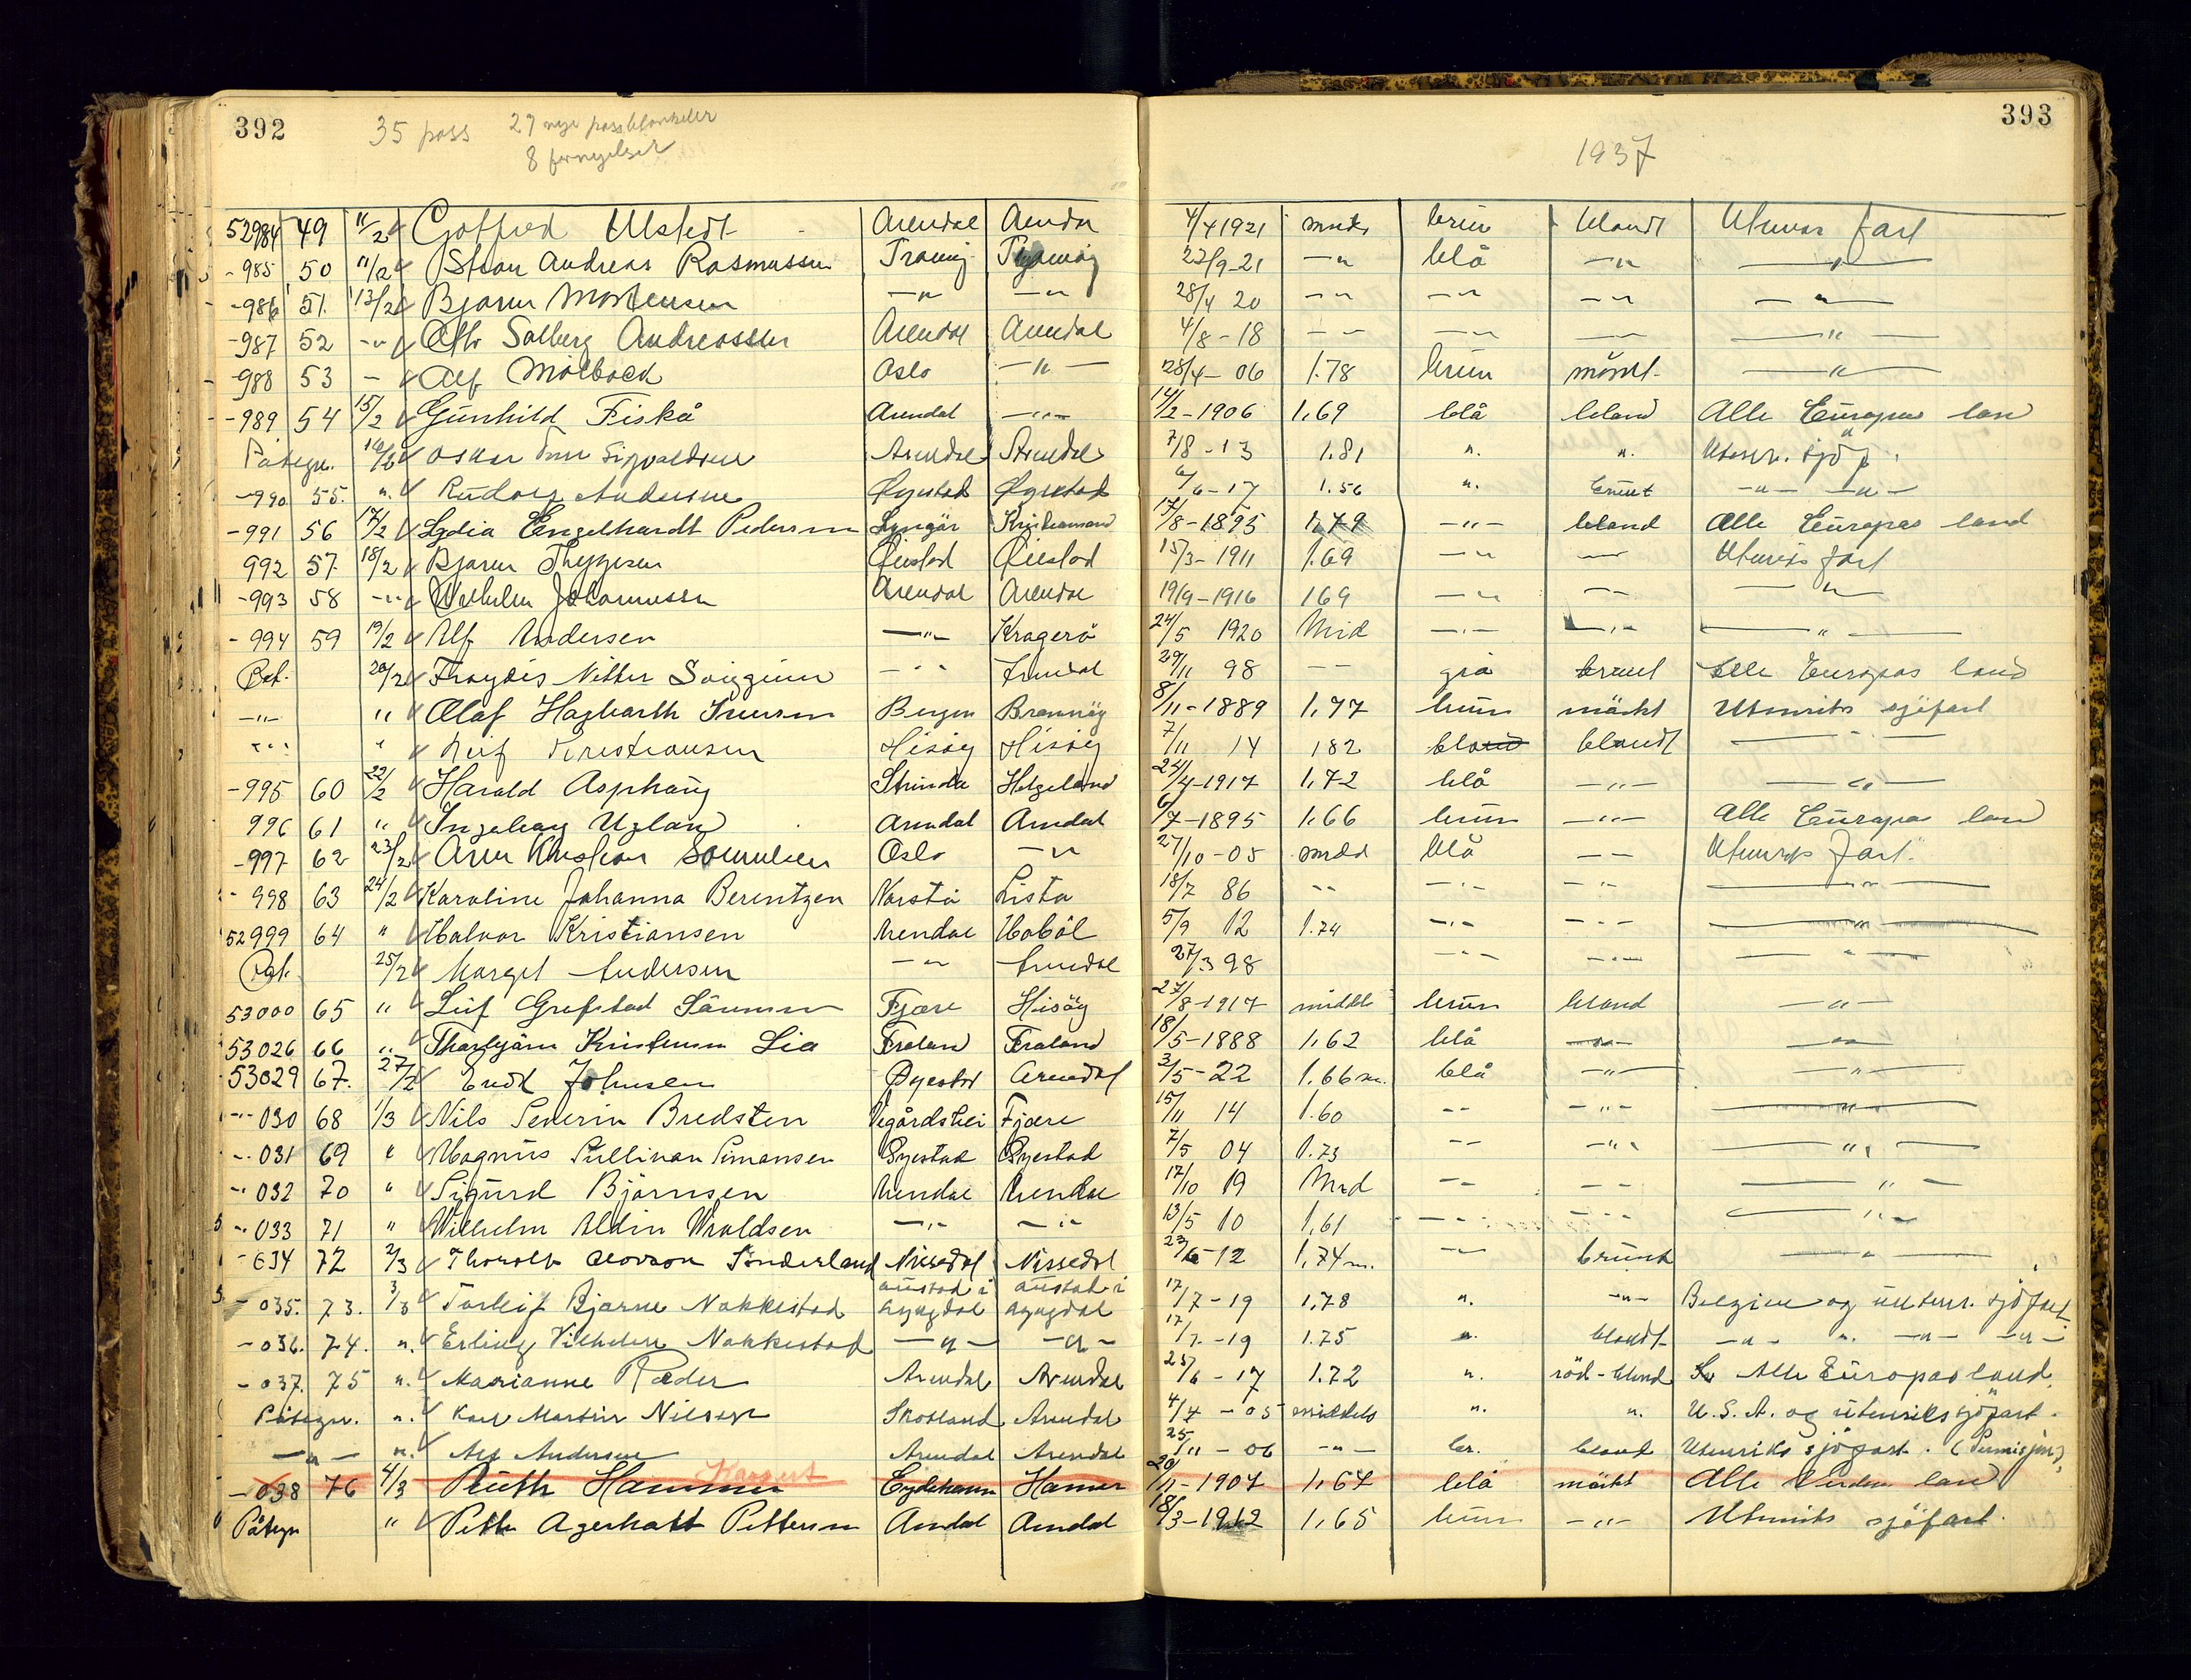 392
35 pass 27 nye passblanketer
8 fornyelser
393
1937
52984 49 11/2 Gotfred Ulstedt Arendal Arendal 4/4 1921 brun blandt Utenrs fart
-985 50 11/2 Andreas Rasmussen Tromöy Tromöy 23/9-21 -"- blå -"- -"-
-986 51. 13/2 Bjarne Mortensen -"- -"- 28/4 20 -"- -"- -"- -"-
-987 52 -"- Solberg Andreassen Arendal Arendal 4/8-18 -"- -"- -"- -"-
-988 53 - Alf Mölback Oslo -"- 28/4-06 1.78 brun mörkt -"-
-989 54 15/2 Gunhild Fiskå Arendal -"- 14/2-1906 1,69 blå bland Alle Europas land
Påtegn. 16/2 Oskar Arendal Arendal 7/8-13 1.81 ". ". Utenr. sjöf.
-990 55. ". Rudolf Andersen Øyestad Øyestad 6/6-17 1.56 ". brunt -"- -"-
-991 56 17/2 Lydia Engelhardt Pedersen Lyngör Kristiansand 17/8-1895 1,79 -"- bland Alle Europas land
992 57 18/2 Bjarne Thygesen Öiestad Öiestad 15/3-1911 1.69 -"- -"- Utenriks fart
-993 58 -"- Wilhelm Johannessen Arendal Arendal 19/9-1916 169 -"- -"- -"-
-994 59 19/2 Ulf Andersen -"- Kragerö 24/5 1920 Mid -"- -"- -"-
Påt. 20/2 Frøydis Nitter -"- Arendal 29/11 98 -- grå brunt Alle Europas land
-"- " Olaf Hagbarth Iversen Bergen 8/11-1889 1,77 brun mörkt Utenriks sjöfart
-"- " Leif Kristiansen Hisöy Hisöy 7/11 14 182 bland blandt -"-
-995 60 22/2 Harald Asphaug Strinda Helgeland 24/4-1917 1,72 blå -"- -"-
996 61 " Ingeborg Ugland Arendal Arendal 6/7-1895 1,66 brun -"- Alle Europas land
-997 62 23/2 Arne Kristian Oslo -"- 27/10-05 midd blå -- Utenriks fart.
-998 63 24/2 Karoline Johanna Berentzen Lista 18/7 86 -- -"- -"- -"-
52999 64 " Halvor Kristiansen Arendal Hobøl 5/9 12 1.74 -"- -"- -"-
Påt. 25/2 Margit Andersen -"- Arendal 27/3 98 -"- -"- -"-
53000 65 " Leif Grefstad Fjære Hisöy 27/8-1917 middels brun bland -"-
53026 66 " Thorbjörn Kristensen Lia Froland Froland 18/5-1888 1,62 blå -"- -"-
53029 67. 27/2 Johnsen Øyestad Arendal 3/5-22 1.66 m. blå -"- -"-
-"- 030 68 1/3 Nils Severin Bredsten Vegårdshei Fjære 15/11 14 1.60 -- -"- -"-
-"- 031 69 " Magnus Sullivan Simonsen Øyestad Øyestad 7/5 04 1.73 -- -"- -"-
-"- 032 70 " Sigurd Björnsen Arendal Arendal 17/10 19 Mid -- -- -"-
-"- 033 71 " Wilhelm Aldin Uvaldsen -"- -"- 13/5 10 1,61 -"- -"- -"-
-034 72 2/3 Thorolv Sönderland Nissedal Nissedal 23/6-12 1,74 m. -"- brunt -"-
-035. 73. 3/3 Torleif Bjarne Nakkestad Austad i Lyngdal Austad i Lyngdal 17/7-19 1,78 ". -"- Belgien og utenr. sjöfart
-036. 74. ". Erling Vilhelm Nakkestad -"- -"- 17/7-19 1.75 ". blandt -"- ". -"- -"-
-037. 75 ". Marianne Ræder Arendal Arendal 25/6-17 1.72 ". röd-blond Alle Europas land.
Påtegn. ". Karl Martin Nilsen Skotland Arendal 4/4-05 middels ". ". U.S.A. og utenriks sjöfart.
-"- ". Alf Andersen Arendal Arendal 25/11-06 -"- br. bland Utenriks sjöfart.
-038 76 4/3 Ruth Hammer Kassert Eydehavn 20/11-1907 1,67 blå mörkt Alle Verdens land
Påtegn " Petter Agerholt Pettersen Arendal Arendal 18/3-1912 1,65 brun -"- Utenriks sjöfart.